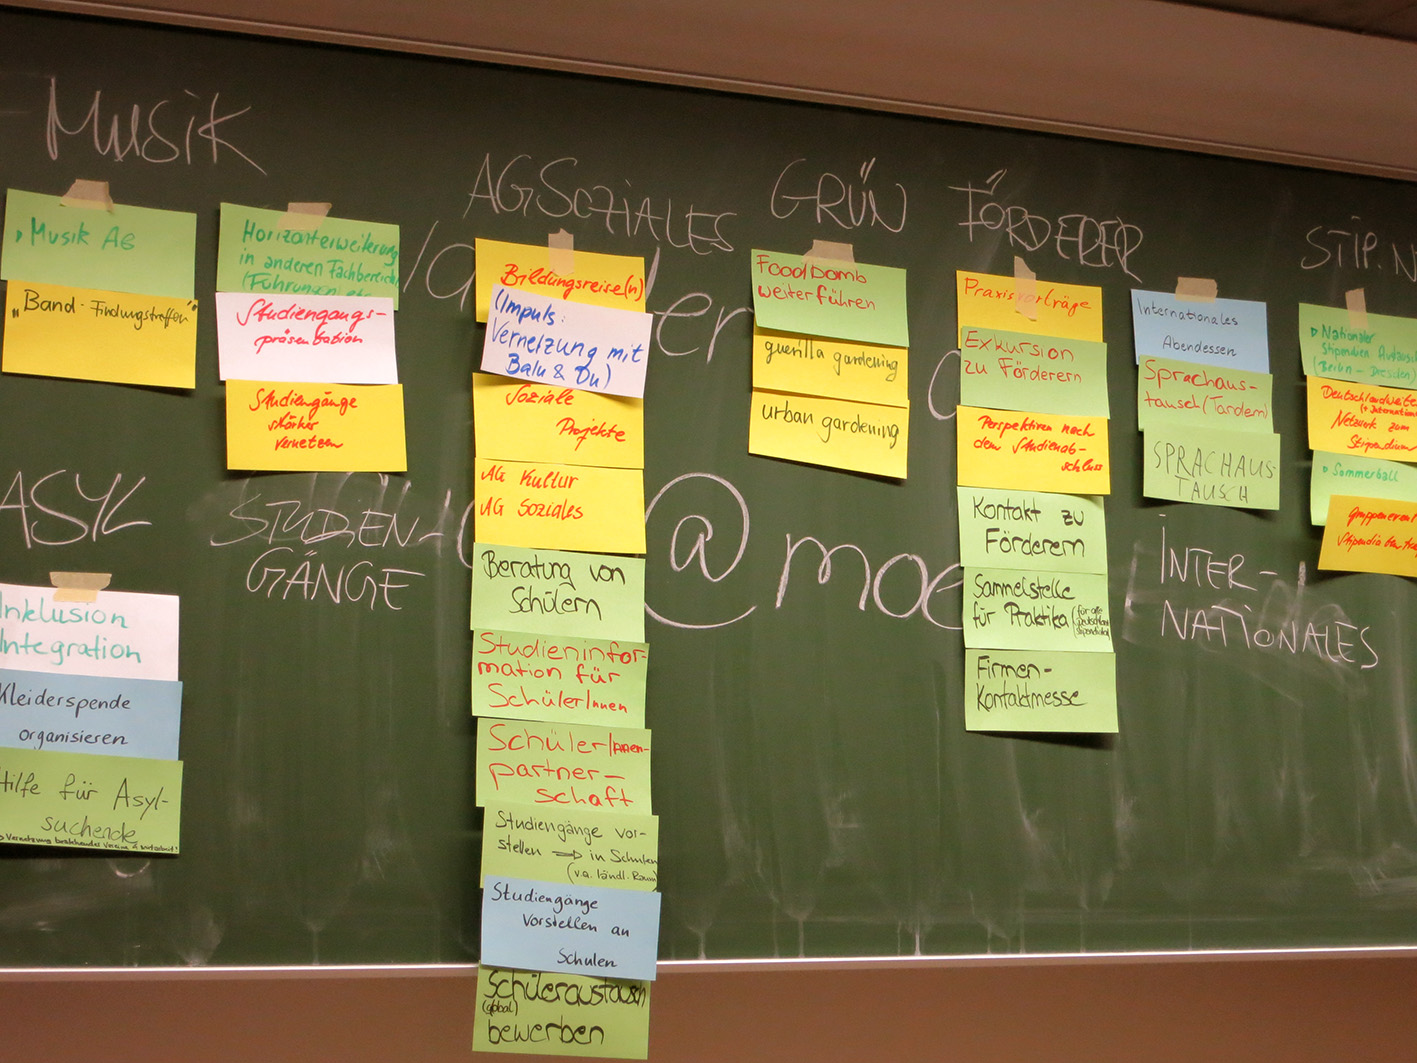 Musik
Musik AG
"Band-Findungstreffen"
ASYL
Inklusion
Integration
Kleiderspende
organisieren
Hilfe für Asyl-
suchende
Horizonterweiterung
in anderen Fachbereichen
(Führungen) etc.
Studiengangs-
präsentation
Studiengänge
stärker
vernetzen
STUDIEN-
GÄNGE
AG SOZIALES
Bildungsreise(n)
(Impuls:
Vernetzung mit
Balu & Du)
Soziale
Projekte
AG Kultur
AG Soziales
Beratung von
Schülern
Studieninfor-
mation für
SchülerInnen
Schüler/Innen-
partner-
schaft
Studiengänge vor-
stellen ⇒ in Schulen
(v.a. ländl. Raum)
Studiengänge
vorstellen an
Schulen
Schüleraustausch
(global)
bewerben
@moe
GRÜN
Foodbomb
weiterführen
guerilla gardening
urban gardening
FÖRDERER
Praxisvorträge
Exkursion
zu Förderern
Perspektiven nach
dem Studienab-
schluss
Kontakt zu
Förderern
Sammelstelle
für Praktika (für alle
Firmen-
Kontaktmesse
Internationales
Abendessen
Sprachaus-
tausch (Tandem)
SPRACHAUS-
TAUSCH
INTER-
NATIONALES
STIP. N
Nationaler
Stipendien Austausch
(Berlin - Dresden)
Deutschlandweites
Netzwerk zum
Stipendium
Sommerball